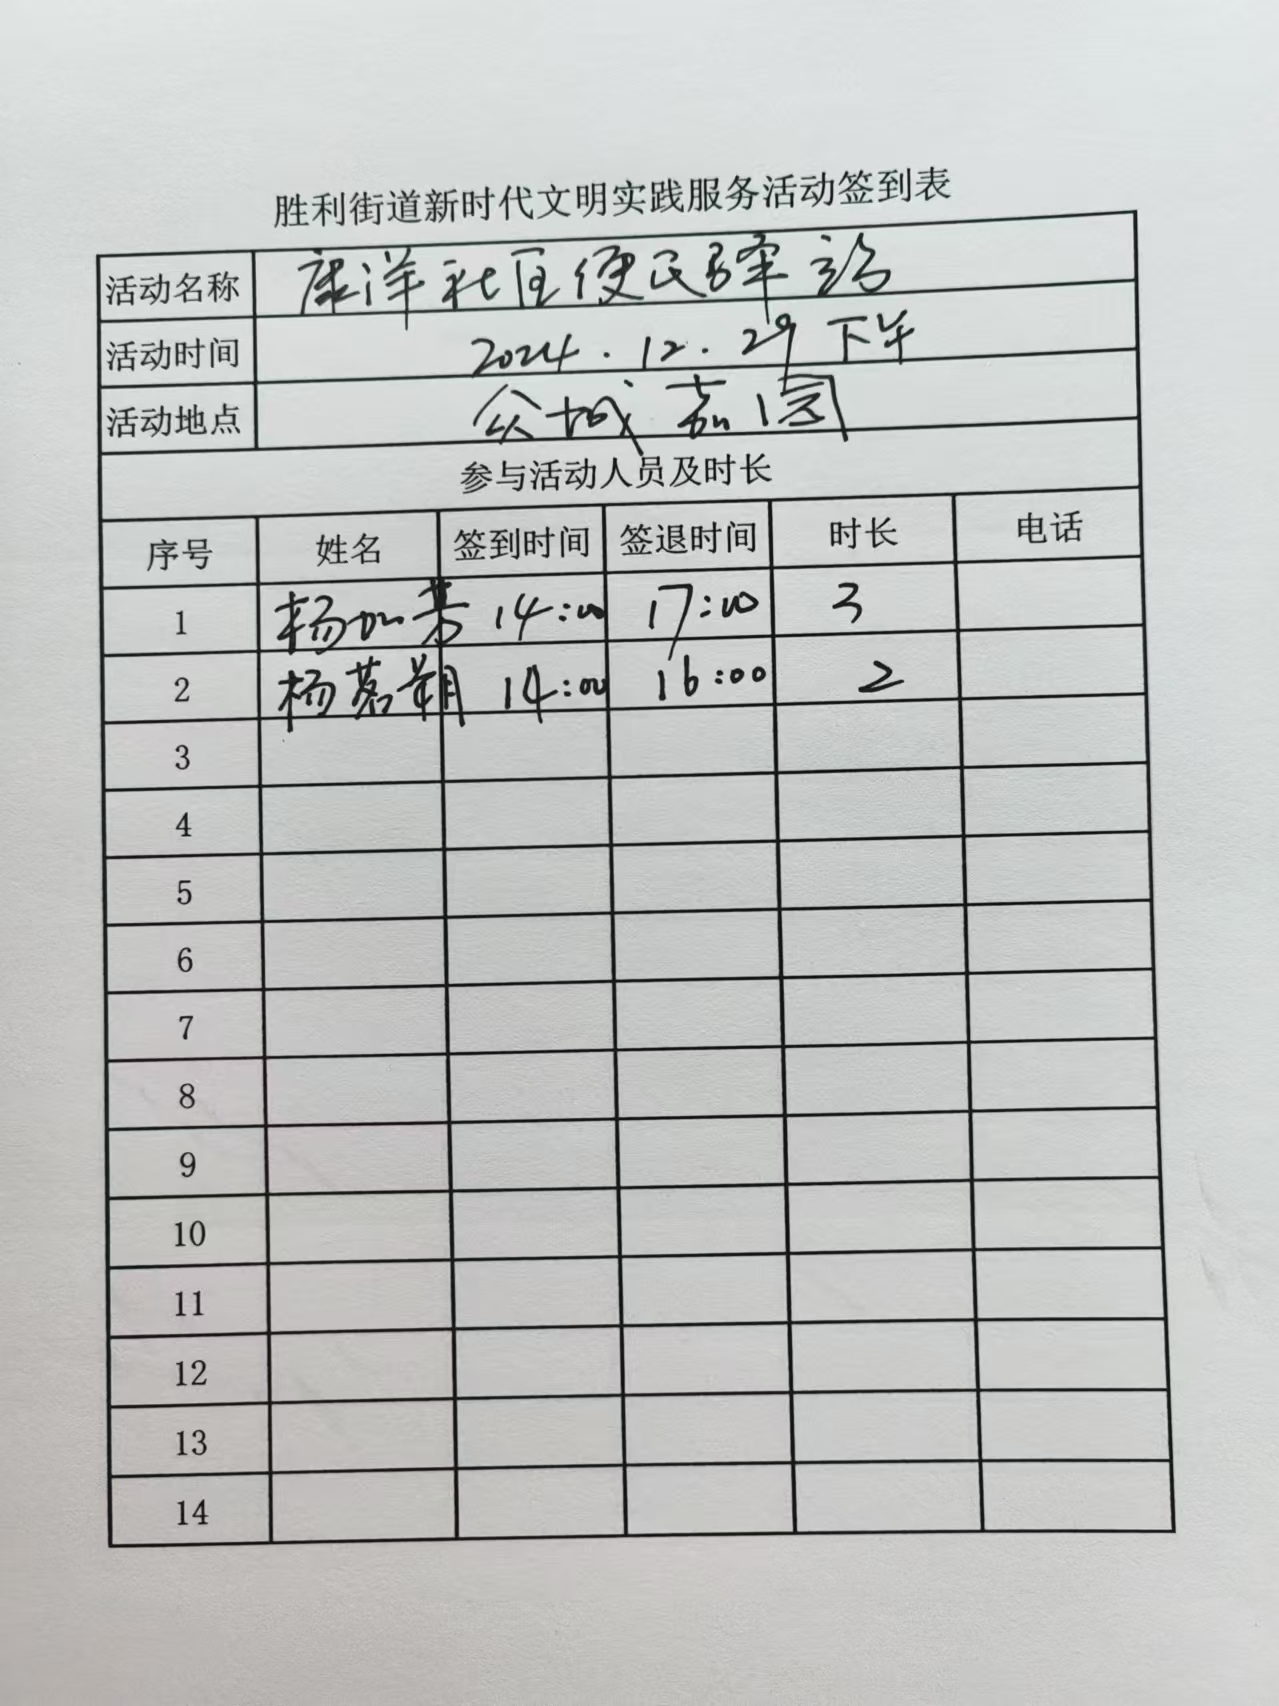 胜利街道新时代文明实践服务活动签到表
活动名称 康洋社区便民驿站
活动时间 2024.12.29 下午
活动地点 众城嘉园
参与活动人员及时长
序号 姓名 签到时间 签退时间 时长 电话
1 杨 14:00 17:00 3
2 杨茗朝 14:00 16:00 2
3
4
5
6
7
8
9
10
11
12
13
14